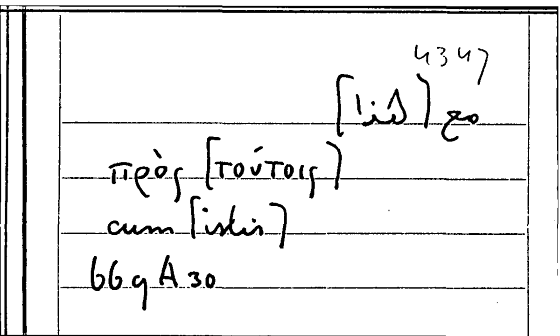 4347
مع [هذا]
πρὸς [τούτοις]
cum [istis]
669 A 30